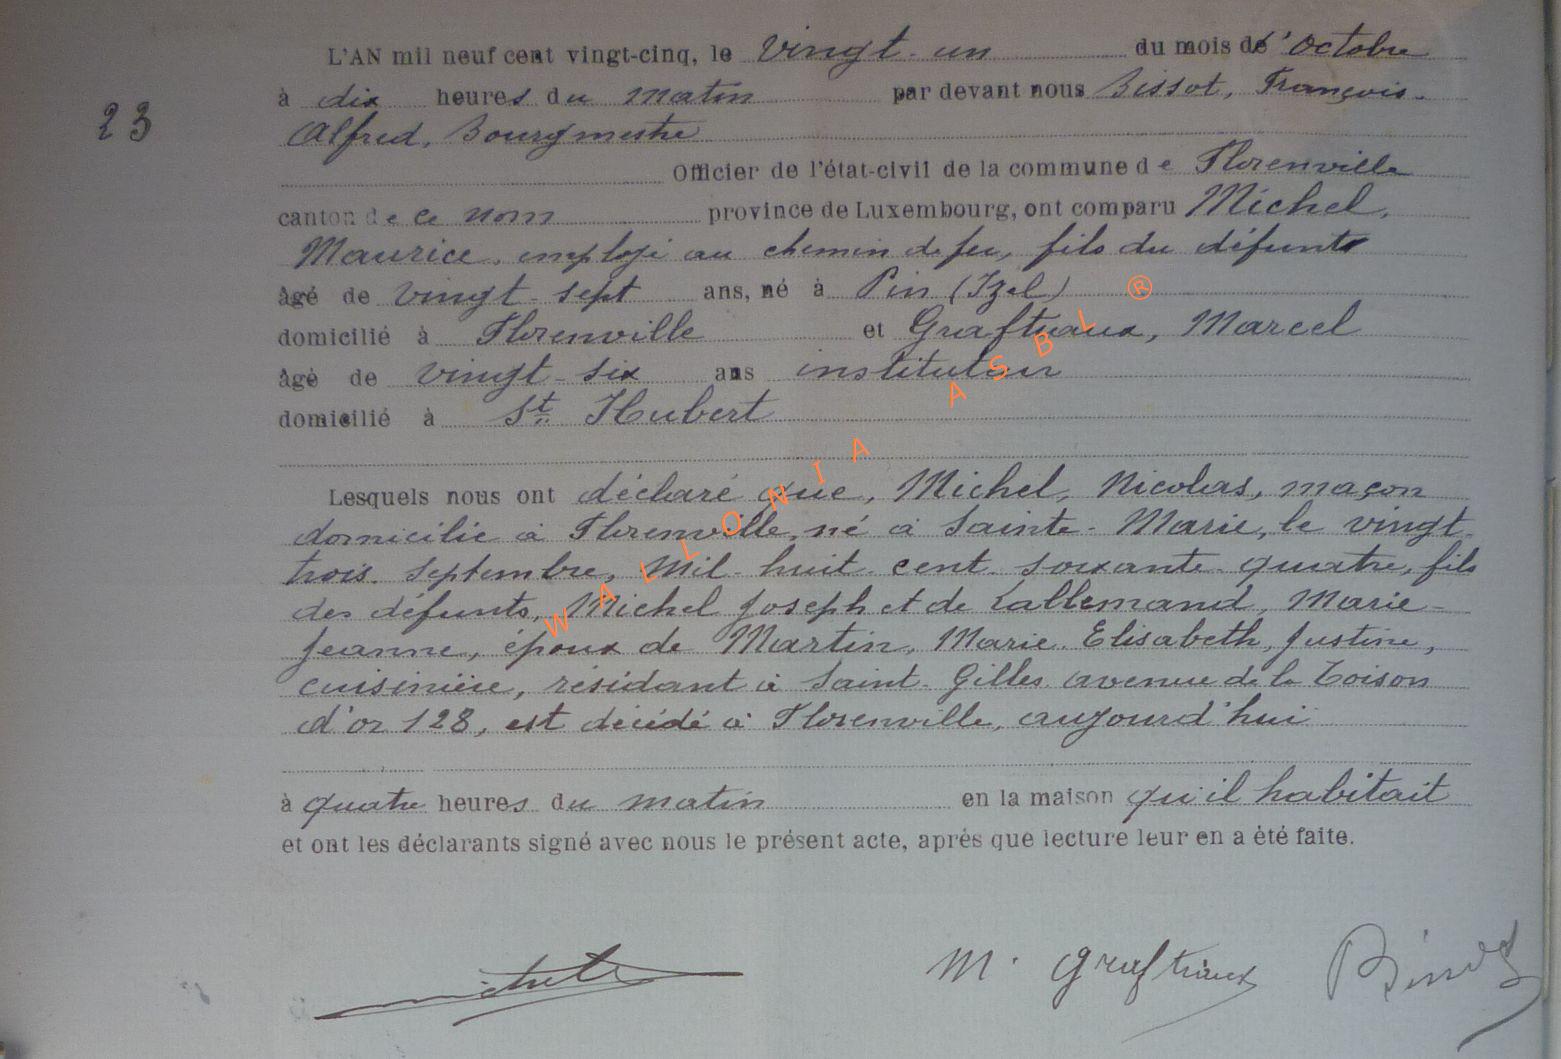 L'AN mil neuf cent vingt-cinq, le vingt-un du mois d'octobre
à dix heures du matin par devant nous Bissot, François-
23
Alfred, Bourgmestre
Officier de l'état-civil de la commune de Florenville
canton de ce nom province de Luxembourg, ont comparu Michel,
Maurice, employé au chemin de fer, fils du défunt
âgé de vingt-sept ans, né à Pin (Izel)
domicilié à Florenville et Graftiaux, Marcel
âgé de vingt-six ans instituteur
domicilié à St. Hubert
Lesquels nous ont déclaré que, Michel, Nicolas, maçon
domicilié à Florenville, né à Sainte-Marie, le vingt-
trois septembre, mil-huit-cent-soixante-quatre, fils
des défunts, Michel Joseph et de Lallemand, Marie-
Jeanne, époux de Martin, Marie Elisabeth, Justine,
cuisinière, résidant à Saint-Gilles avenue de la Toison
d'or 128, est décédé à Florenville, aujourd'hui
à quatre heures du matin en la maison qu'il habitait
et ont les déclarants signé avec nous le présent acte, après que lecture leur en a été faite.
Michel M. Graftiaux Bissot
WALLONIA ASBL ®